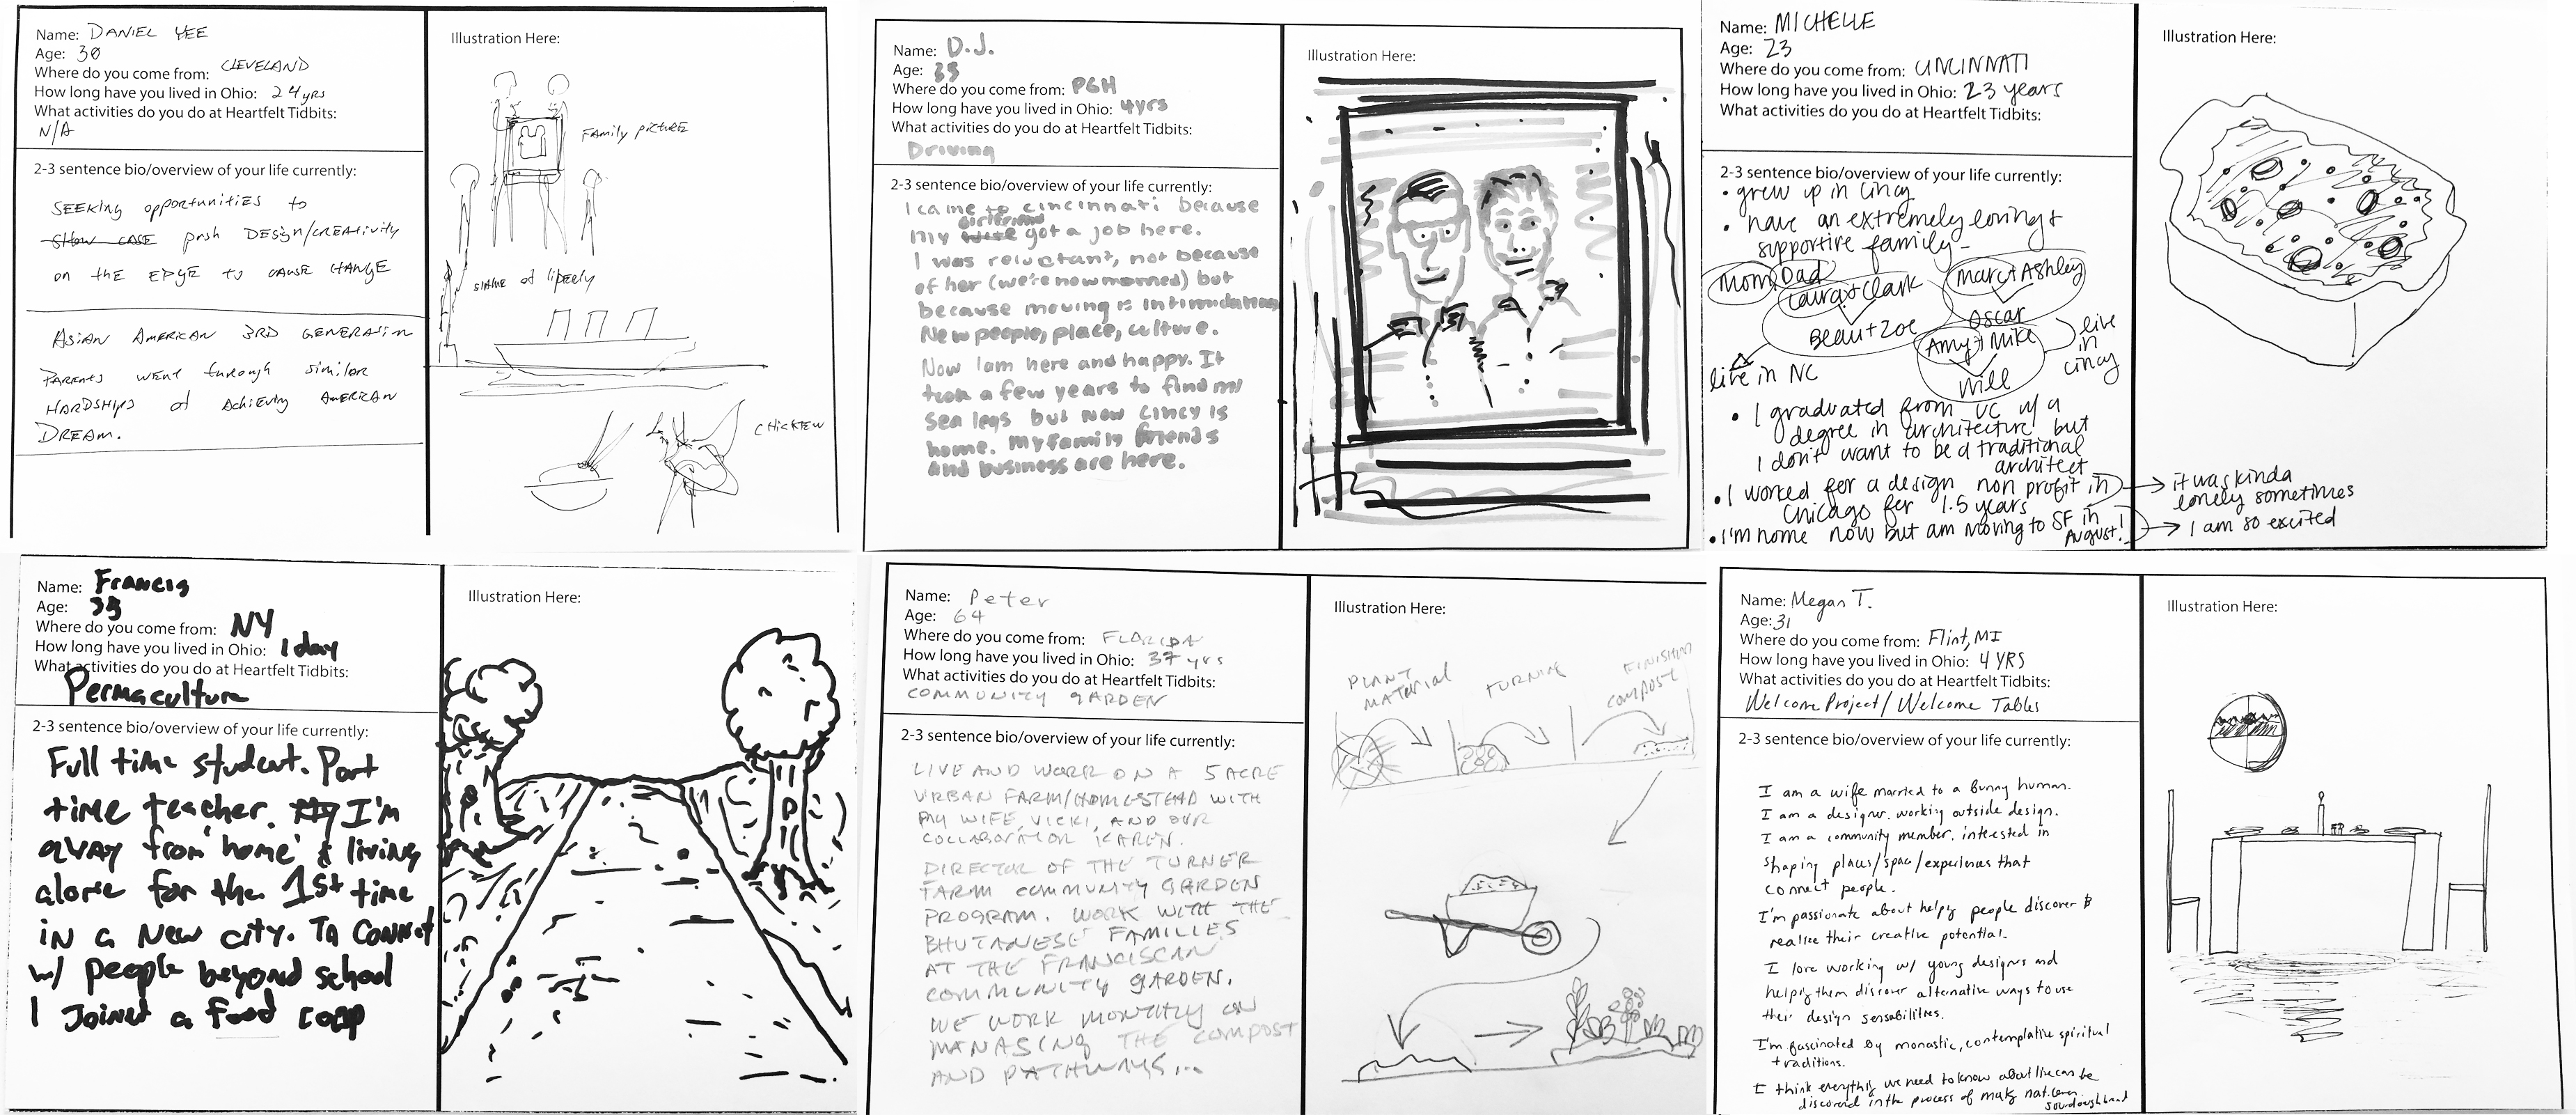 Name: DANIEL YEE
Age: 30
Where do you come from: CLEVELAND
How long have you lived in Ohio: 24 yrs
What activities do you do at Heartfelt Tidbits:
N/A
2-3 sentence bio/overview of your life currently:
SEEKING opportunities to
SHOW CASE push DESIGN/CREATIVITY
on the EDGE to CAUSE CHANGE
ASIAN AMERICAN 3RD GENERATION
PARENTS went through similar
HARDSHIPS of Achieving AMERICAN
DREAM.
Illustration Here:
FAMILY PICTURE
of liberty
CHICKEN
Name: D.J.
Age: 35
Where do you come from: PGH
How long have you lived in Ohio: 4yrs
What activities do you do at Heartfelt Tidbits:
Driving
2-3 sentence bio/overview of your life currently:
I came to cincinnati because
girlfriend
my wife got a job here.
I was reluctant, not because
of her (we're now married) but
because moving is intimidating
New people, place, culture.
Now I am here and happy. It
took a few years to find my
sea legs but now cincy is
home. My family friends
and business are here.
Illustration Here:
Name: MICHELLE
Age: 23
Where do you come from: CINCINNATI
How long have you lived in Ohio: 23 years
What activities do you do at Heartfelt Tidbits:
2-3 sentence bio/overview of your life currently:
• grew up in cincy
• have an extremely loving +
supportive family -
Mom Dad
Laura + Clark
Marc + Ashley
Beau + Zoe
Oscar
Amy + Mike
Will
live in cincy
live in NC
• I graduated from UC w/ a
degree in architecture but
I don't want to be a traditional
architect
• I worked for a design non profit in
Chicago for 1.5 years
• I'm home now but am moving to SF in
August!
Illustration Here:
it was kinda
lonely sometimes
I am so excited
Name: Francis
Age: 35
Where do you come from: NY
How long have you lived in Ohio: 1 day
What activities do you do at Heartfelt Tidbits:
Permaculture
2-3 sentence bio/overview of your life currently:
Full time student. Part
time teacher. I'm
away from 'home' & living
alone for the 1st time
in a New city. To Connect
w/ people beyond school
I Joined a food coop
Illustration Here:
Name: Peter
Age: 64
Where do you come from: FLORIDA
How long have you lived in Ohio: 37 yrs
What activities do you do at Heartfelt Tidbits:
COMMUNITY GARDEN
2-3 sentence bio/overview of your life currently:
LIVE AND WORK ON A 5 ACRE
URBAN FARM/HOMESTEAD WITH
MY WIFE, VICKI, AND OUR
COLLABORATOR KAREN.
DIRECTOR OF THE TURNER
FARM COMMUNITY GARDEN
PROGRAM. WORK WITH THE
BHUTANESE FAMILIES
AT THE FRANCISCAN
COMMUNITY GARDEN.
WE WORK MONTHLY ON
MANAGING THE COMPOST
AND PATHWAYS...
Illustration Here:
PLANT
MATERIAL
TURNING
FINISHED
COMPOST
Name: Megan T.
Age: 31
Where do you come from: Flint, MI
How long have you lived in Ohio: 4 YRS
What activities do you do at Heartfelt Tidbits:
Welcome Project/ Welcome Tables
2-3 sentence bio/overview of your life currently:
I am a wife married to a funny human.
I am a designer. working outside design.
I am a community member. interested in
shaping places/space/experiences that
connect people.
I'm passionate about helping people discover &
realize their creative potential.
I love working w/ young designers and
helping them discover alternative ways to use
their design sensabilities.
I'm fascinated by monastic, contemplative spiritual
traditions.
I think everything we need to know about live can be
discovered in the process of making nat.
sourdough bread
Illustration Here: